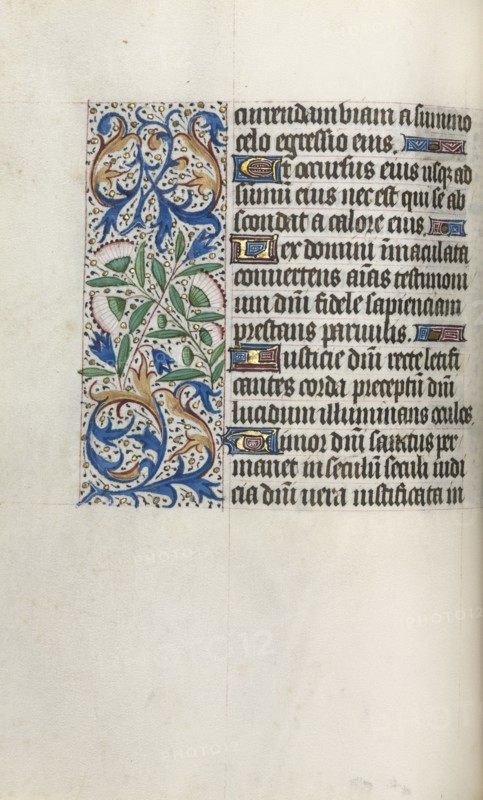 currendam viam a summo
celo egressio eius.
Et occursus eius usq; ad
sumū eius nec est qui se ab
scondat a calore eius.
Lex domini īmaculata
convertens aīas testimoni
um dm̄ fidele sapienciam
prestans parvulis.
Iusticie dm̄ recte letifi
cantes corda preceptū dm̄
lucidum illuminans oculos
Timor dm̄ sanctus per
manet in seculū seculi iudi
cia dm̄ vera iustificata in
PHOTO12